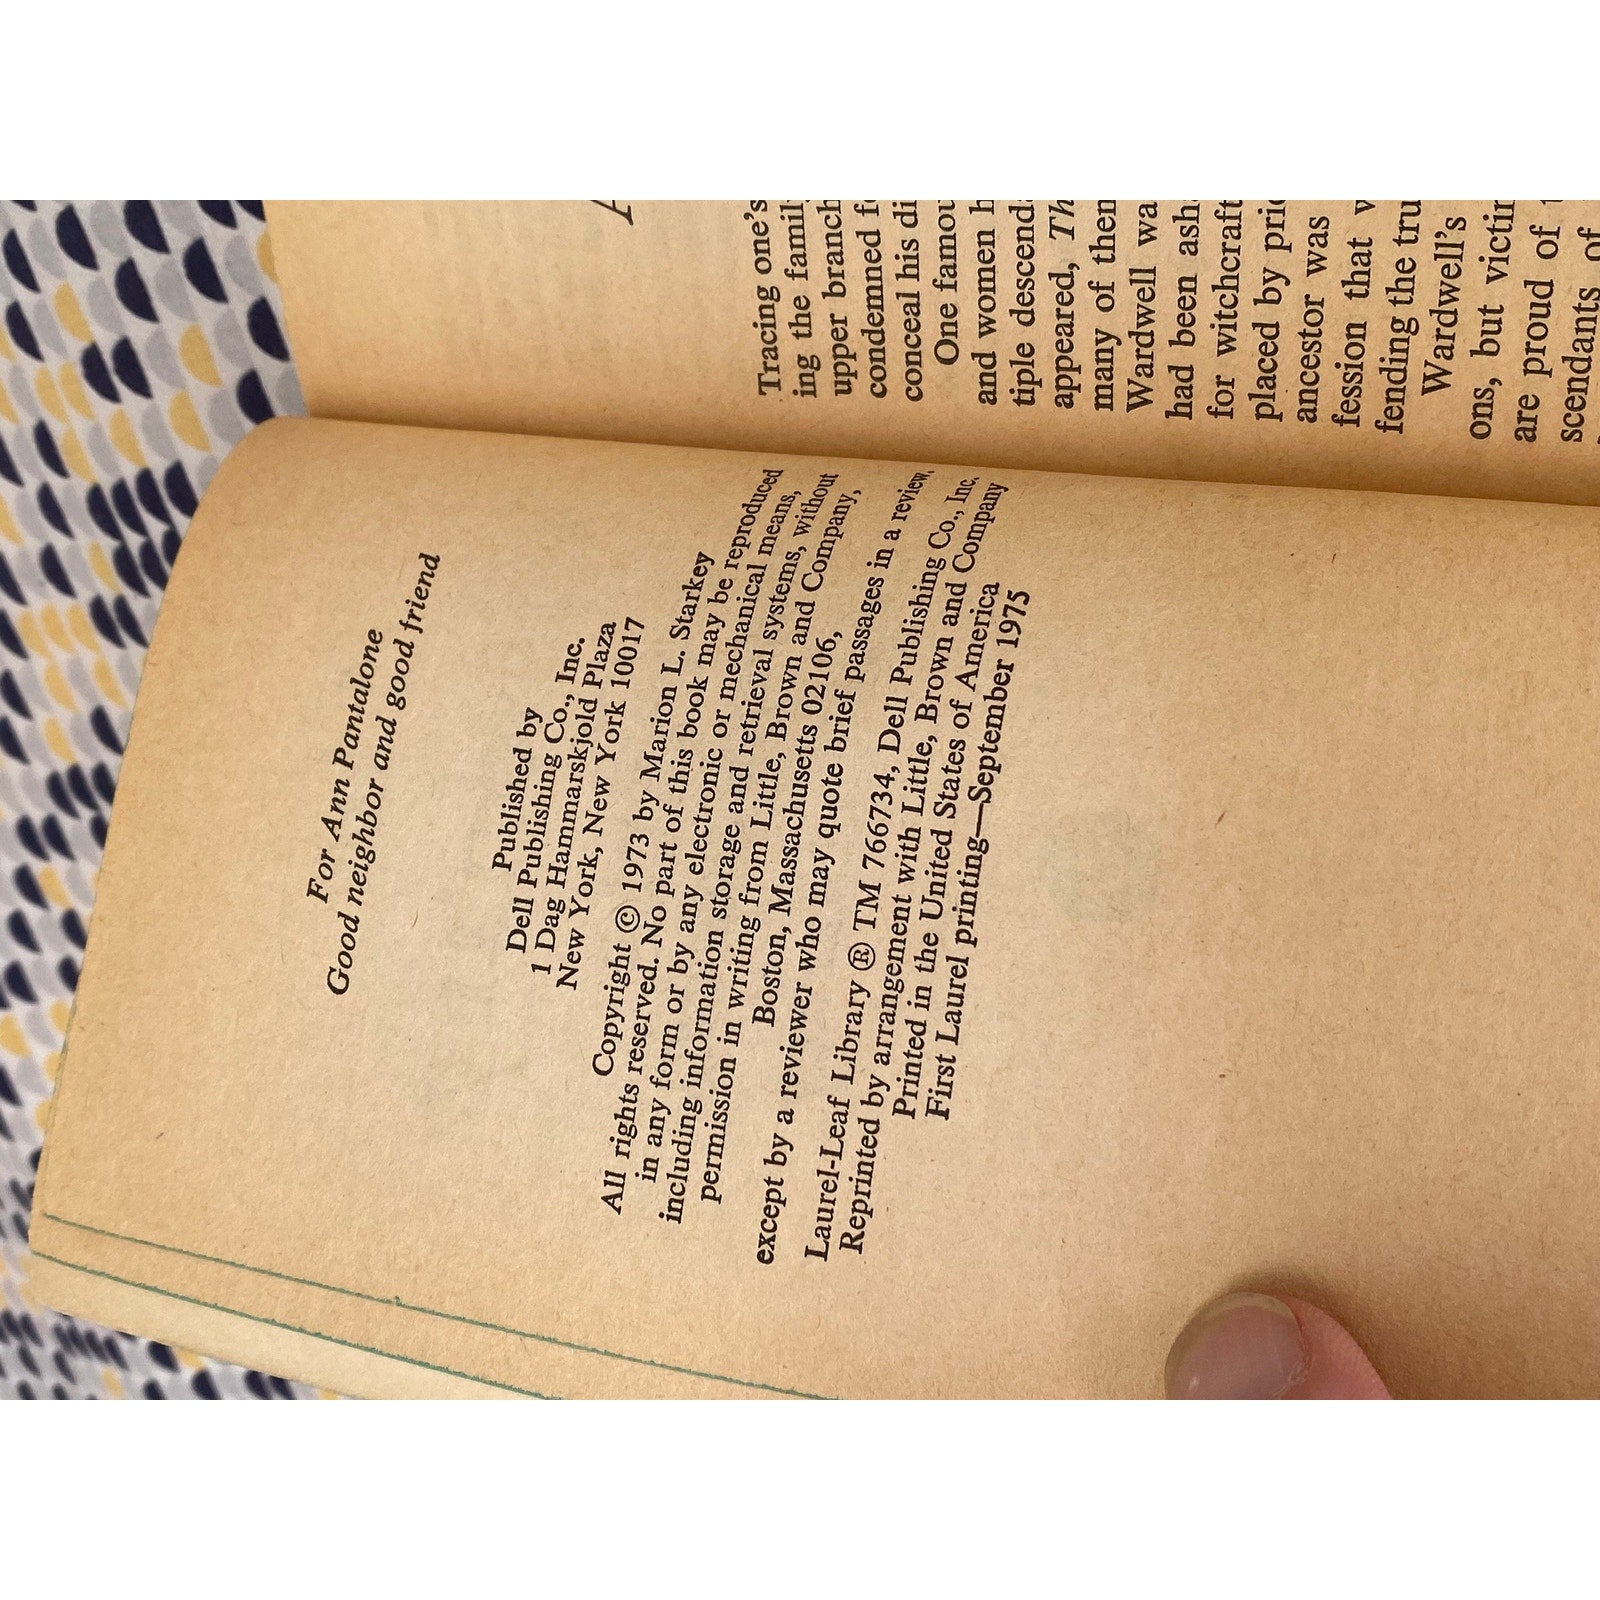 For Ann Pantalone
Good neighbor and good friend
Published by
Dell Publishing Co., Inc.
1 Dag Hammarskjold Plaza
New York, New York 10017
Copyright © 1973 by Marion L. Starkey
All rights reserved. No part of this book may be reproduced
in any form or by any electronic or mechanical means,
including information storage and retrieval systems, without
permission in writing from Little, Brown and Company,
Boston, Massachusetts 02106,
except by a reviewer who may quote brief passages in a review.
Laurel-Leaf Library ® TM 766734, Dell Publishing Co., Inc.
Reprinted by arrangement with Little, Brown and Company
Printed in the United States of America
First Laurel printing—September 1975
Tracing one's
ing the family
upper branch
condemned
conceal his
One
and women
tiple
appeared,
many of
Wardwell
had been
for witchcraft
placed by
ancestor was
fession that
fending the
Wardwell's
ons, but
are proud of
scendants of